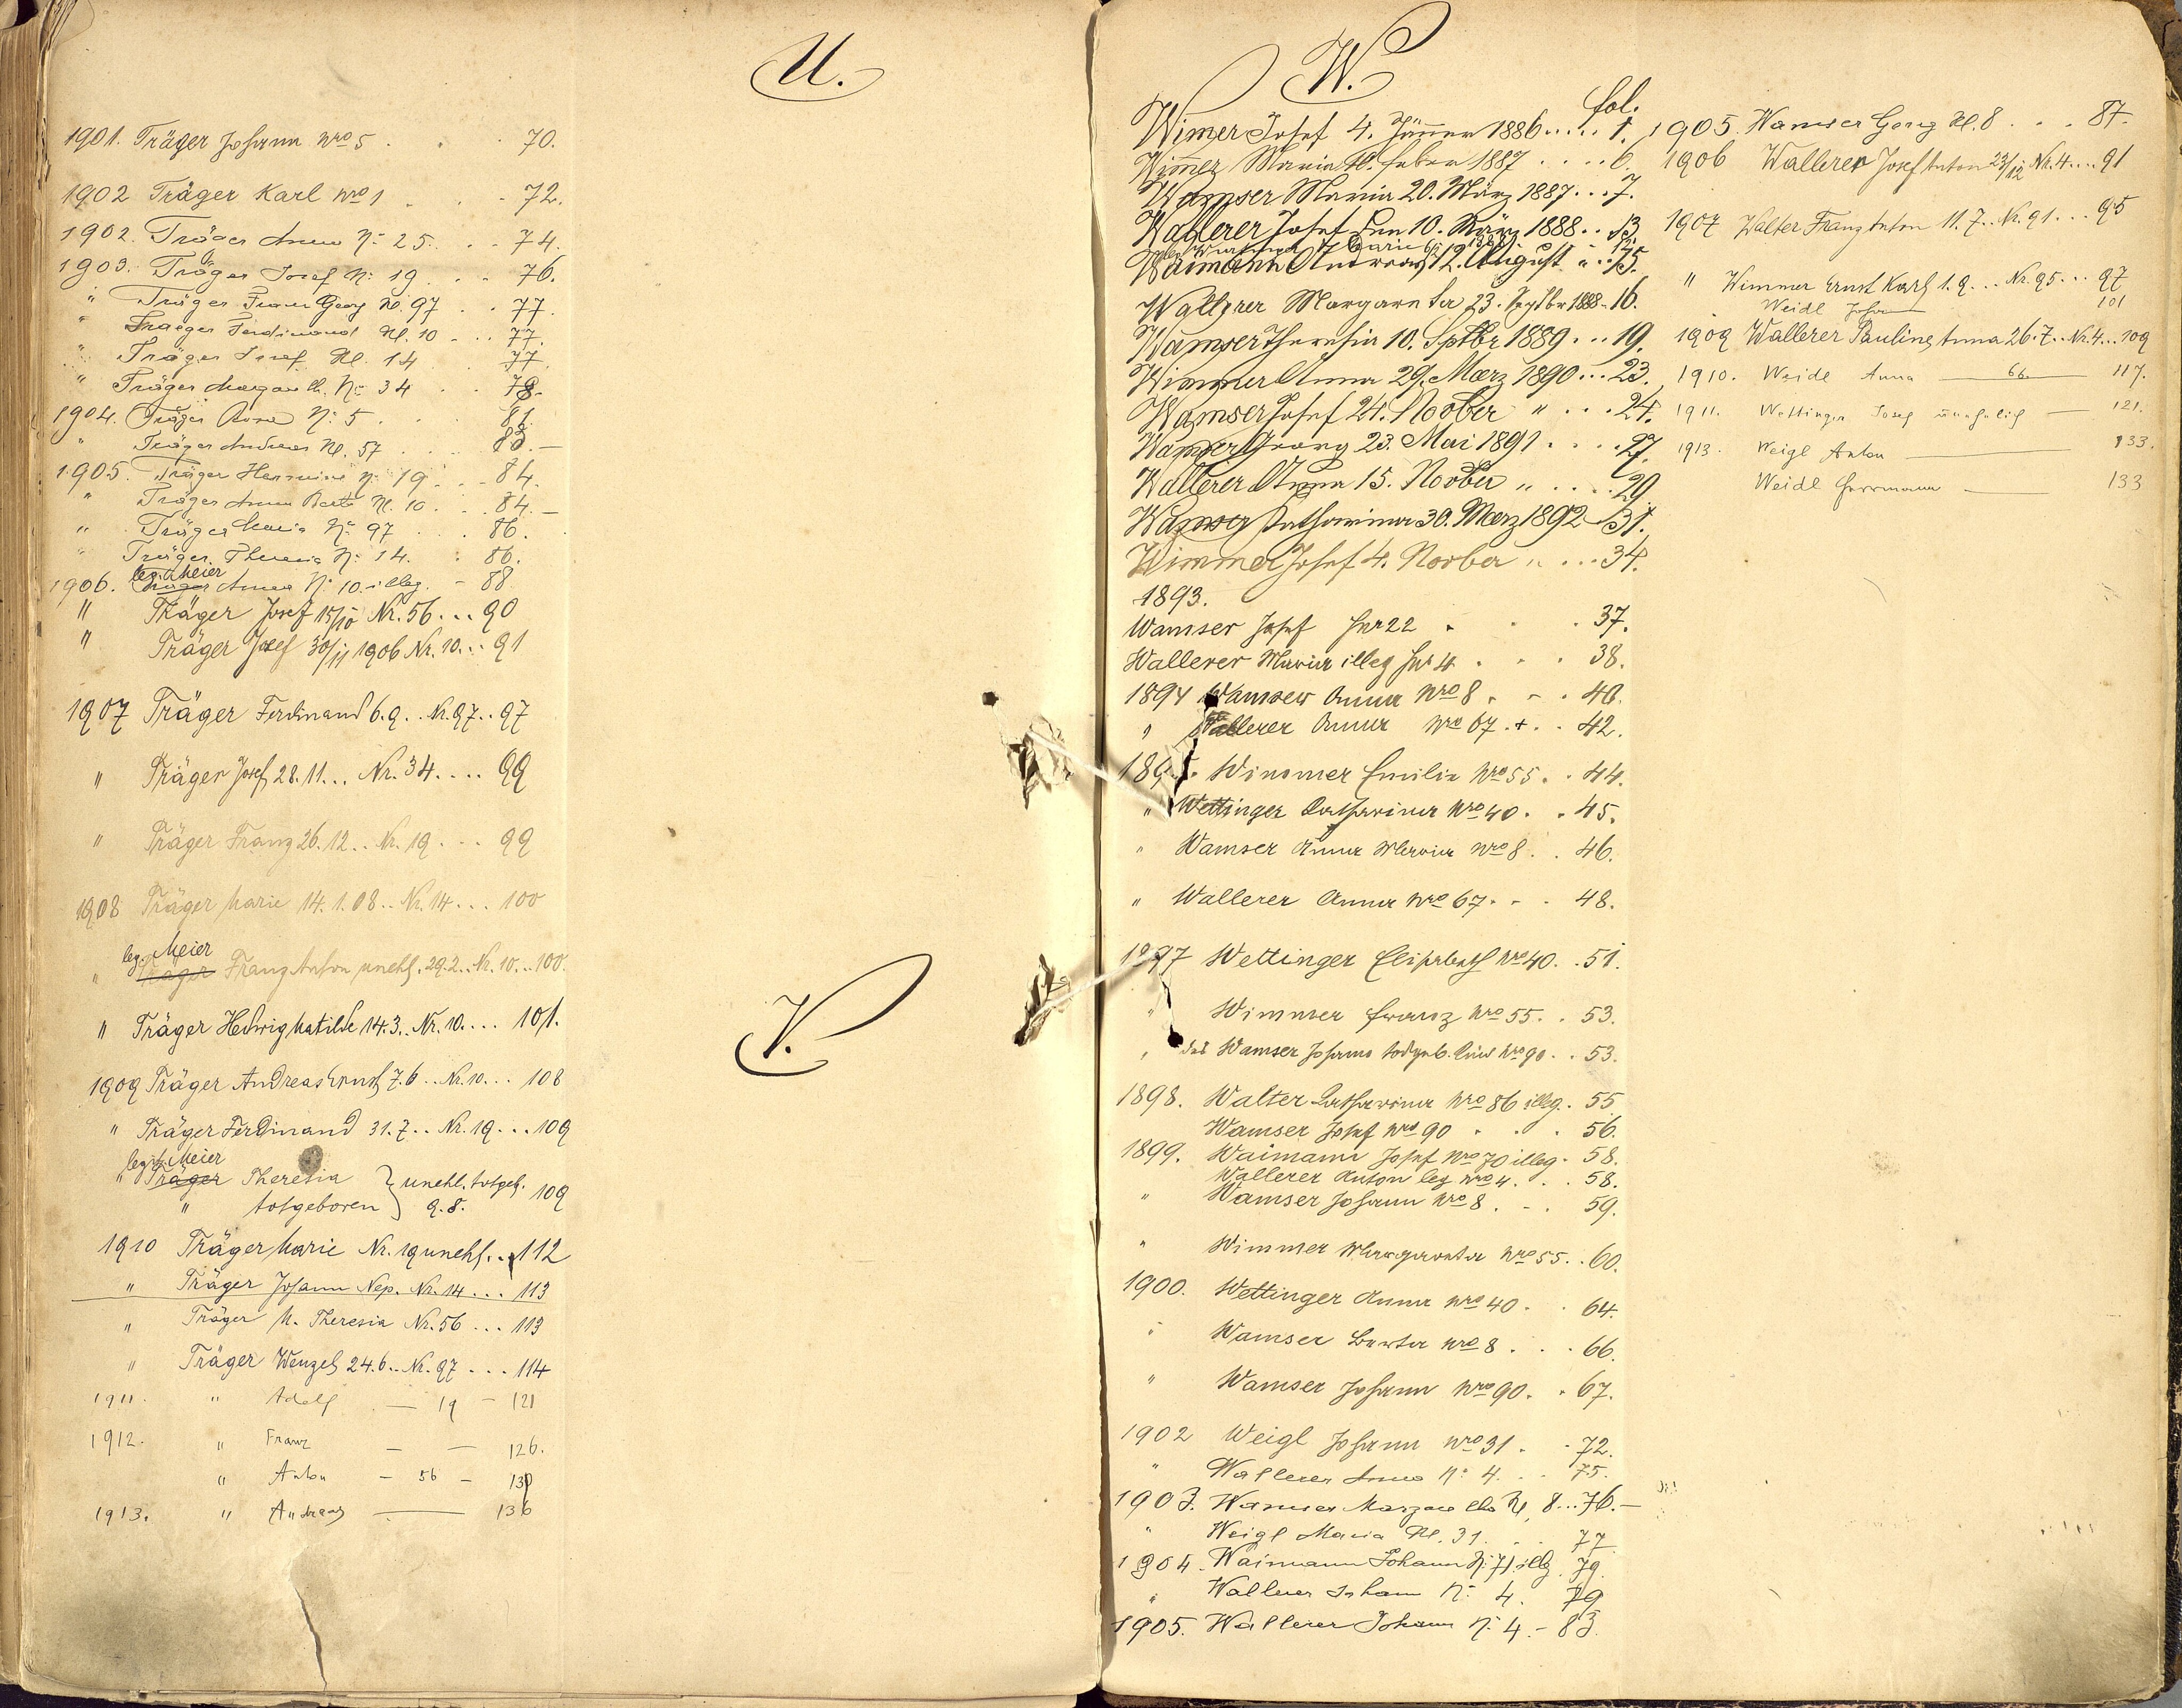 1901. Träger Johann Nro 5 . . . 70.
1902 Träger Karl Nro 1 . . . 72.
1902. Träger Anna N: 25. . . 74.
1903. Träger Josef N: 19 . . . 76.
" Träger Franz Georg N. 97 . . 77.
" Traeger Ferdinand N. 10 . . . 77.
" Träger Josef N. 14 77.
" Träger Margareth. N: 34 . . 78.
1904. Träger Rosa N: 5 . . . 81.
" Träger Andreas N. 57 . . . 83.—
1905. Träger Hermine N: 19 . . . 84.
" Träger Anna Berta N. 10 . . . 84.—
" Träger Maria N: 97 . . . 86.
" Träger Theresia N: 14. : 86.
leg. Meier
1906. Träger Anna N: 10 illeg. - 88
" Träger Josef 15/10 Nr. 56 . . . 90
" Träger Josef 30/11 1906 Nr. 10 . . . 91
1907 Träger Ferdinand 6.9. . Nr. 97 . . 97
" Träger Josef 28.11 . . . Nr. 34 . . . . 99
" Träger Franz 26.12 . . Nr. 19 . . . 99
1908 Träger Marie 14.1.08 . . Nr. 14 . . . 100
leg. Meier
" Träger Franz Anton unehl. 29.2. . Nr. 10 . . . 100.
" Träger Hedwig Matilde 14.3. . Nr. 10 . . . . 101.
1909 Träger Andreas Ernst 7.6 . . Nr. 10 . . . 108
" Träger Ferdinand 31.7 . . Nr. 19 . . . 109
legit. Meier
" Träger Theresia } unehl. totgeb. 109
" totgeboren } 9.8.
1910 Träger Marie Nr. 19 unehl. . . 112
" Träger Johann Nep. Nr. 14 . . . 113
" Träger M. Theresia Nr. 56 . . . 113
" Träger Wenzel 24.6. . Nr. 97 . . . 114
1911. " Adolf — 19 — 121
1912. " Franz — — 126.
" Anton — 56 —
1913. " Andreas —— 136
U.
V.
W.
fol.
Wimer Josef 4. Jänner 1886 . . . . . 1.
Wimer Maria 10. Feber 1887 . . . . 6.
Wamser Maria 20. März 1887 . . . 7.
Wallerer Josef den 10. März 1888 . . 13
Waimann Andreas 12. August " . . 15.
Wallerer Margaretha 23. Septbr 1888 - 16.
Wamser Theresia 10. Septbr 1889 . . . 19.
Wimmer Anna 29. Maerz 1890 . . . 23.
Wamser Josef 24. Novber " . . . 24.
Wamser Georg 23. Mai 1891 . . . . 27.
Wallerer Anna 15. Novber " . . . . 29
Wamser Katharina 30. Maerz 1892 - 31.
Wimmer Josef 4. Novber " . . . 34.
1893.
Wamser Josef Nr 22 . . . 37.
Wallerer Maria illeg Nr 4 . . . 38.
1894 Wamser Anna Nro 8 . - . 40.
" Wallerer Anna Nro 67 . + . . 42.
1895. Wimmer Emilie Nro 55 . . 44.
" Wettinger Katharina Nro 40 . . 45.
" Wamser Anna Maria Nro 8 . . 46.
" Wallerer Anna Nro 67 . - . 48.
1897 Wettinger Elisabeth Nro 40. . 51.
" Wimmer Franz Nro 55. . 53.
" des Wamser Johann todgeb. Kind Nro 90 . . 53.
1898. Walter Katharina Nro 86 illeg. . 55
Wamser Josef Nro 90 . . . 56.
1899. Waimann Josef Nro 70 illeg . 58.
Wallerer Anton leg Nro 4 . . . 58.
" Wamser Johann Nro 8 . - . 59.
" Wimmer Margareta Nro 55 . . 60.
1900. Wettinger Anna Nro 40 . . 64.
" Wamser Berta Nro 8 . . . 66.
" Wamser Johann Nro 90. . 67.
1902 Weigl Johann Nro 31 . . 72.
" Wallerer Anna N: 4. . . 75.
1903. Wamser Margaretha N. 8 . . . 76.—
" Weigl Maria N. 31 . . . 77
1904. Waimann Johann N: 71 illeg. 79.
" Wallerer Johann N: 4. 79
1905. Wallerer Johann N: 4. - 83.
1905. Wamser Georg N. 8 . . . 87.
1906 Wallerer Josef Anton 23/12 Nr. 4 . . . . 91
1907 Walter Franz Anton 11.7. . Nr. 91 . . . 95
" Wimmer Ernst Karl 1.9. . . Nr. 95 . . . 97
Weidl Johann 101
1909 Wallerer Pauline Anna 26.7. . Nr. 4 . . . 109
1910. Weidl Anna —— 66. —— 117.
1911. Wettinger Josef unehelich — 121.
1913. Weigl Anton —— 133.
Weidl Herrmann —— 133